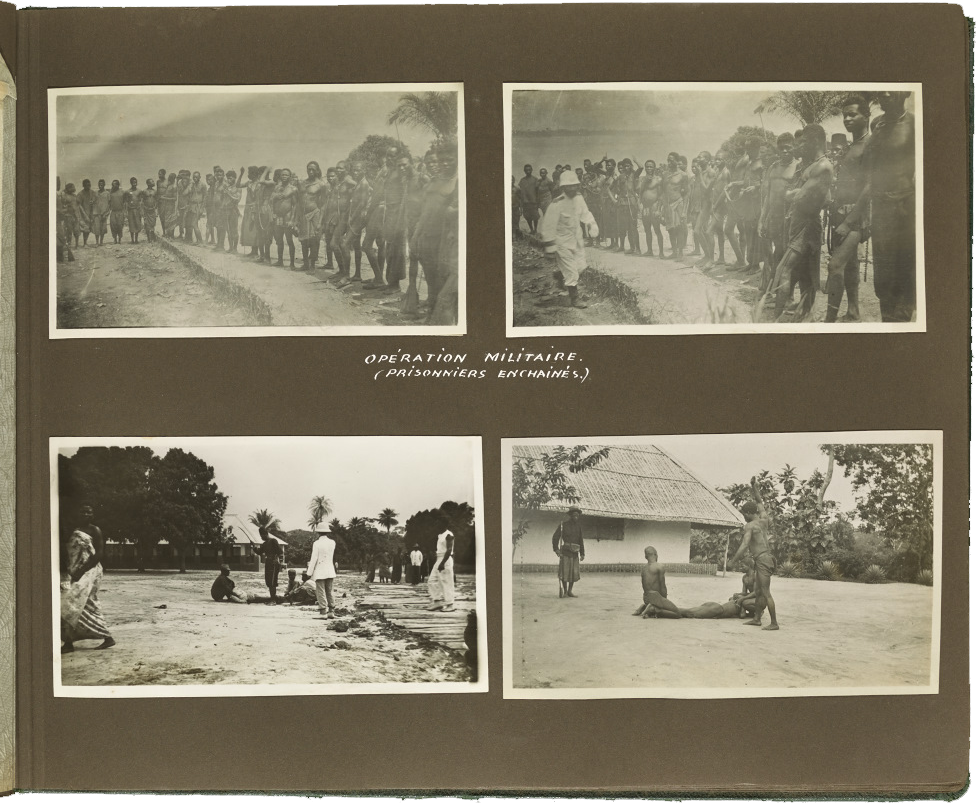 OPÉRATION MILITAIRE.
(PRISONNIERS ENCHAINÉS.)